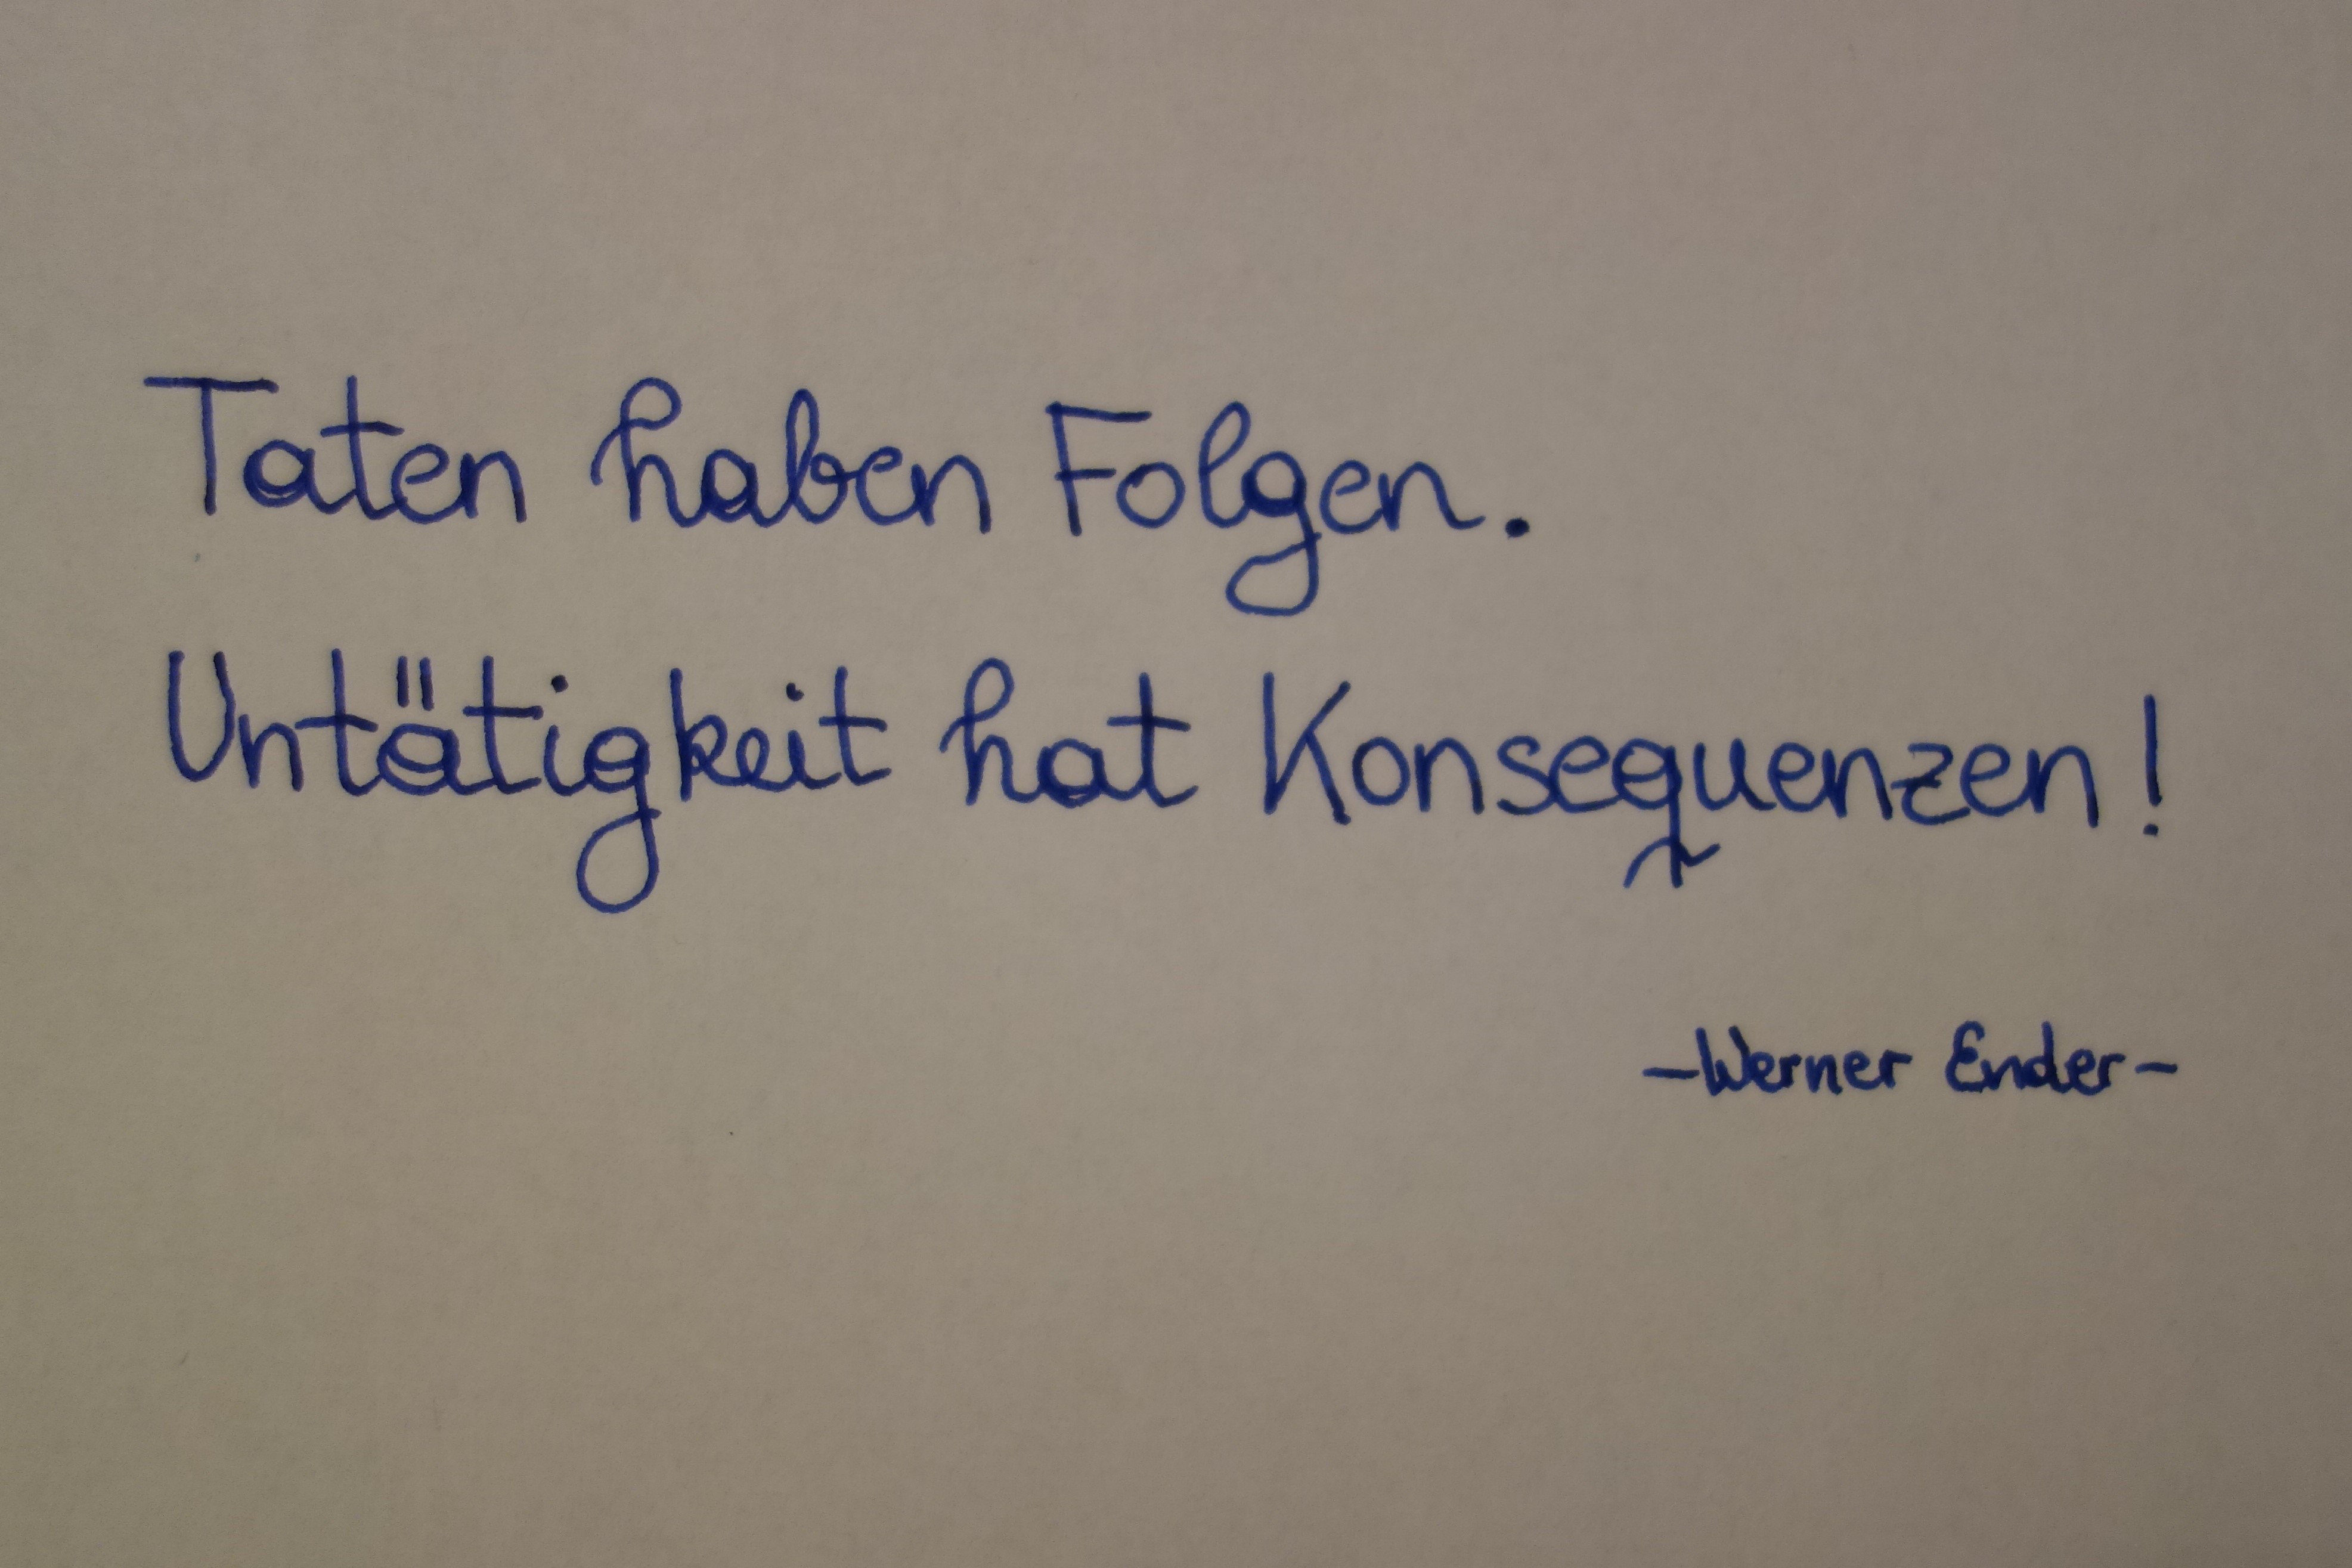 Taten haben Folgen.
Untätigkeit hat Konsequenzen!
-Werner Ender-